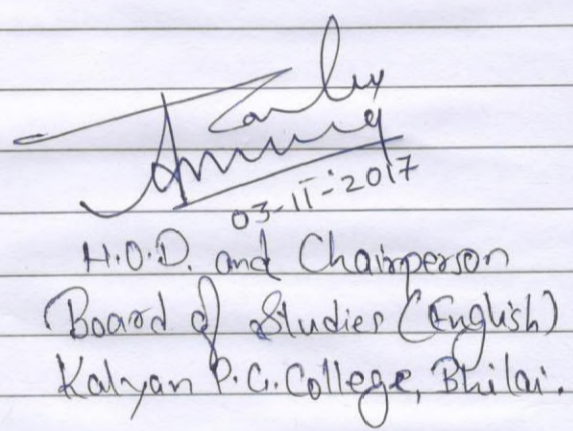 03-11-2017
H.O.D. and Chairperson
Board of Studies (English)
Kalyan P.G. College, Bhilai.